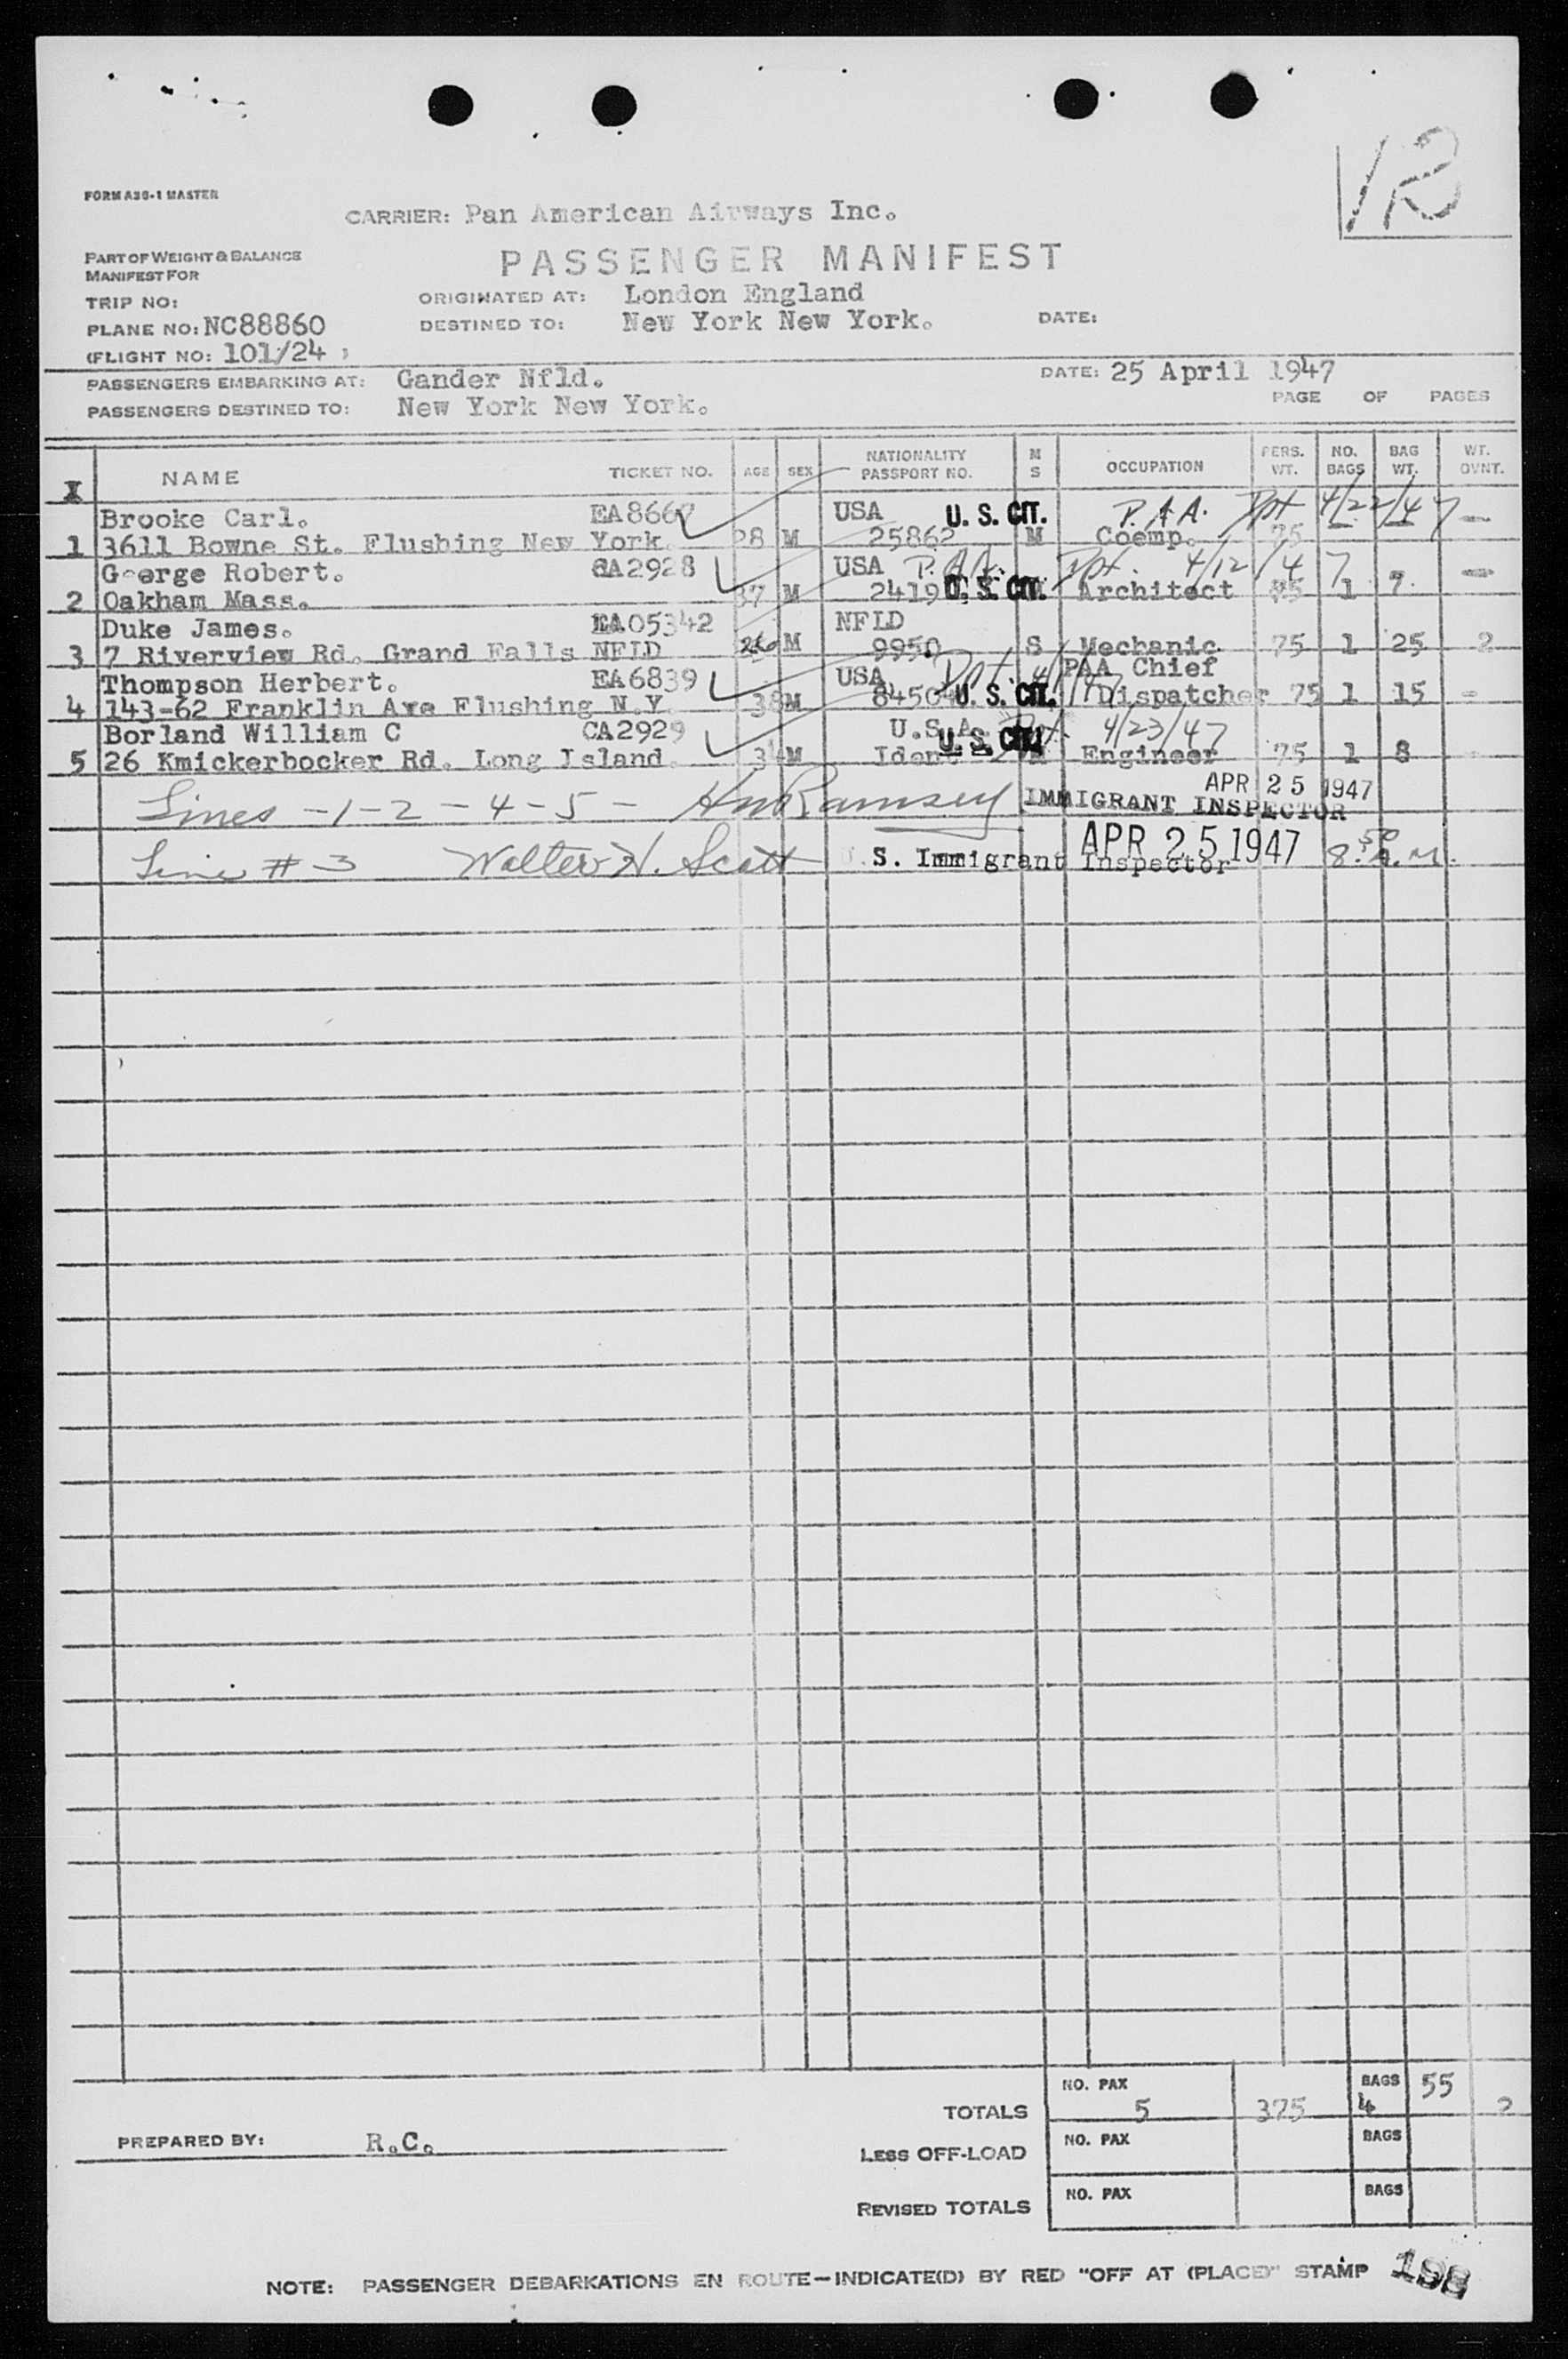 12
FORM A30-1 MASTER
CARRIER: Pan American Airways Inc.
PART OF WEIGHT & BALANCE
MANIFEST FOR
PASSENGER MANIFEST
TRIP NO:
ORIGINATED AT: London England
PLANE NO: NC88860
DESTINED TO: New York New York.
DATE:
(FLIGHT NO: 101/24 )
PASSENGERS EMBARKING AT: Gander Nfld.
DATE: 25 April 1947
PASSENGERS DESTINED TO: New York New York.
PAGE OF PAGES
X NAME TICKET NO. AGE SEX NATIONALITY PASSPORT NO. M S OCCUPATION PERS. WT. NO. BAGS BAG WT. WT. OVNT.
Brooke Carl. EA8667 USA U. S. CIT. P.A.A. Dpt 4/22/47
1 3611 Bowne St. Flushing New York. 28 M 25862 M Coemp. 75 - - -
George Robert. CA2928 USA P.A.A. Dpt. 4/12/47
2 Oakham Mass. 37 M 2419 U. S. CIT. Architect 75 1 7 -
Duke James. EA05342 NFLD
3 7 Riverview Rd. Grand Falls NFLD 26 M 9950 S Mechanic 75 1 25 2
Thompson Herbert. EA6839 USA Dpt. PAA Chief
4 143-62 Franklin Ave Flushing N.Y. 38 M 84504 U. S. CIT. Dispatcher 75 1 15 -
Borland William C CA2929 U.S.A. Dpt. 4/23/47
5 26 Kmickerbocker Rd. Long Island. 34 M Ident U. S. CIT. Engineer 75 1 8 -
Lines -1-2-4-5- HM Ramsey APR 25 1947
IMMIGRANT INSPECTOR
Line #3 Walter H. Scott U. S. Immigrant Inspector APR 25 1947 8:50 A.M.
TOTALS NO. PAX 5 375 BAGS 4 55 2
PREPARED BY: R.C.
LESS OFF-LOAD NO. PAX BAGS
REVISED TOTALS NO. PAX BAGS
NOTE: PASSENGER DEBARKATIONS EN ROUTE—INDICATE(D) BY RED "OFF AT (PLACE)" STAMP
198